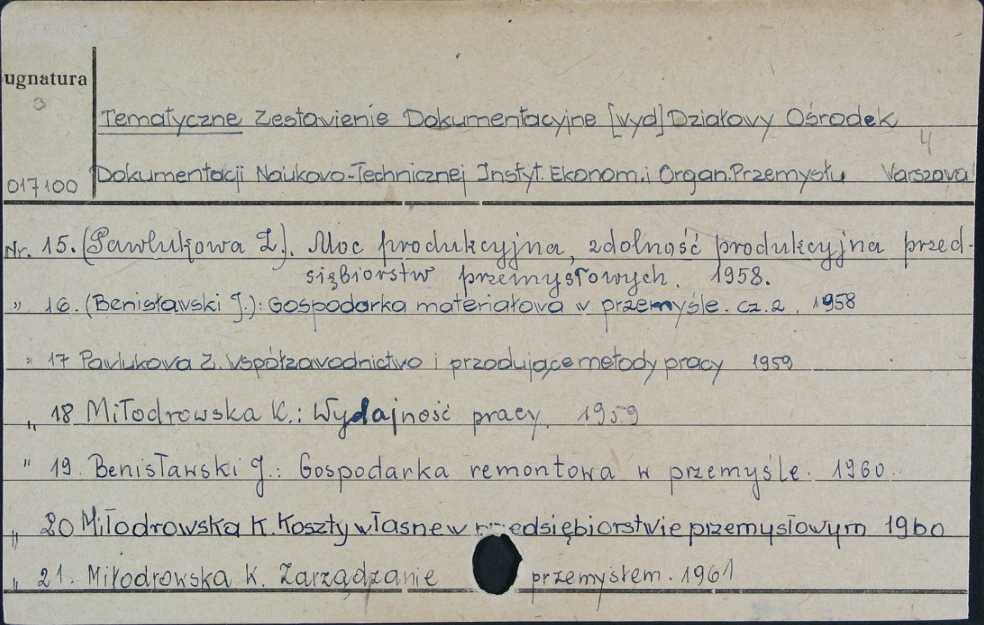 ugnatura
Tematyczne Zestawienie Dokumentacyjne [wyd] Działowy Ośrodek
4
017100 Dokumentacji Naukowo-Technicznej Instyt. Ekonom. i Organ. Przemysłu Warszawa
Nr. 15. (Pawlukowa Z.). Moc produkcyjna, zdolność produkcyjna przed-
siębiorstw przemysłowych. 1958.
" 16. (Benisławski J.): Gospodarka materiałowa w przemyśle. cz. 2. 1958
" 17 Pawlukowa Z. Współzawodnictwo i przodujące metody pracy 1959
" 18 Miłodrowska K.: Wydajność pracy. 1959
" 19. Benisławski J.: Gospodarka remontowa w przemyśle. 1960.
" 20 Miłodrowska K. Koszty własne w przedsiębiorstwie przemysłowym 1960
" 21. Miłodrowska K. Zarządzanie przemysłem. 1961